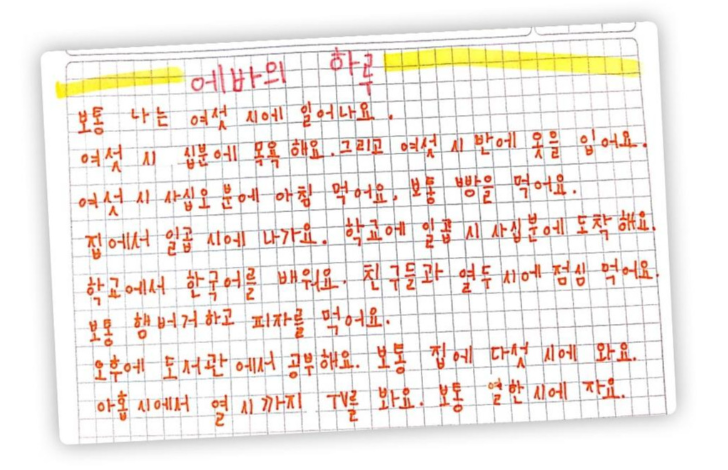 에바의 하루
보통 나는 여섯 시에 일어나요.
여섯 시 십분에 목욕 해요. 그리고 여섯 시 반에 옷을 입어요.
여섯 시 사십오 분에 아침 먹어요. 보통 빵을 먹어요.
집에서 일곱 시에 나가요. 학교에 일곱 시 사십분에 도착 해요.
학교에서 한국어를 배워요. 친구들과 열두 시에 점심 먹어요.
보통 햄버거하고 피자를 먹어요.
오후에 도서관에서 공부해요. 보통 집에 다섯 시에 와요.
아홉 시에서 열 시까지 TV를 봐요. 보통 열한 시에 자요.